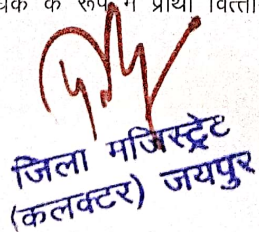 के रूप में प्रार्थी
जिला मजिस्ट्रेट
(कलक्टर) जयपुर